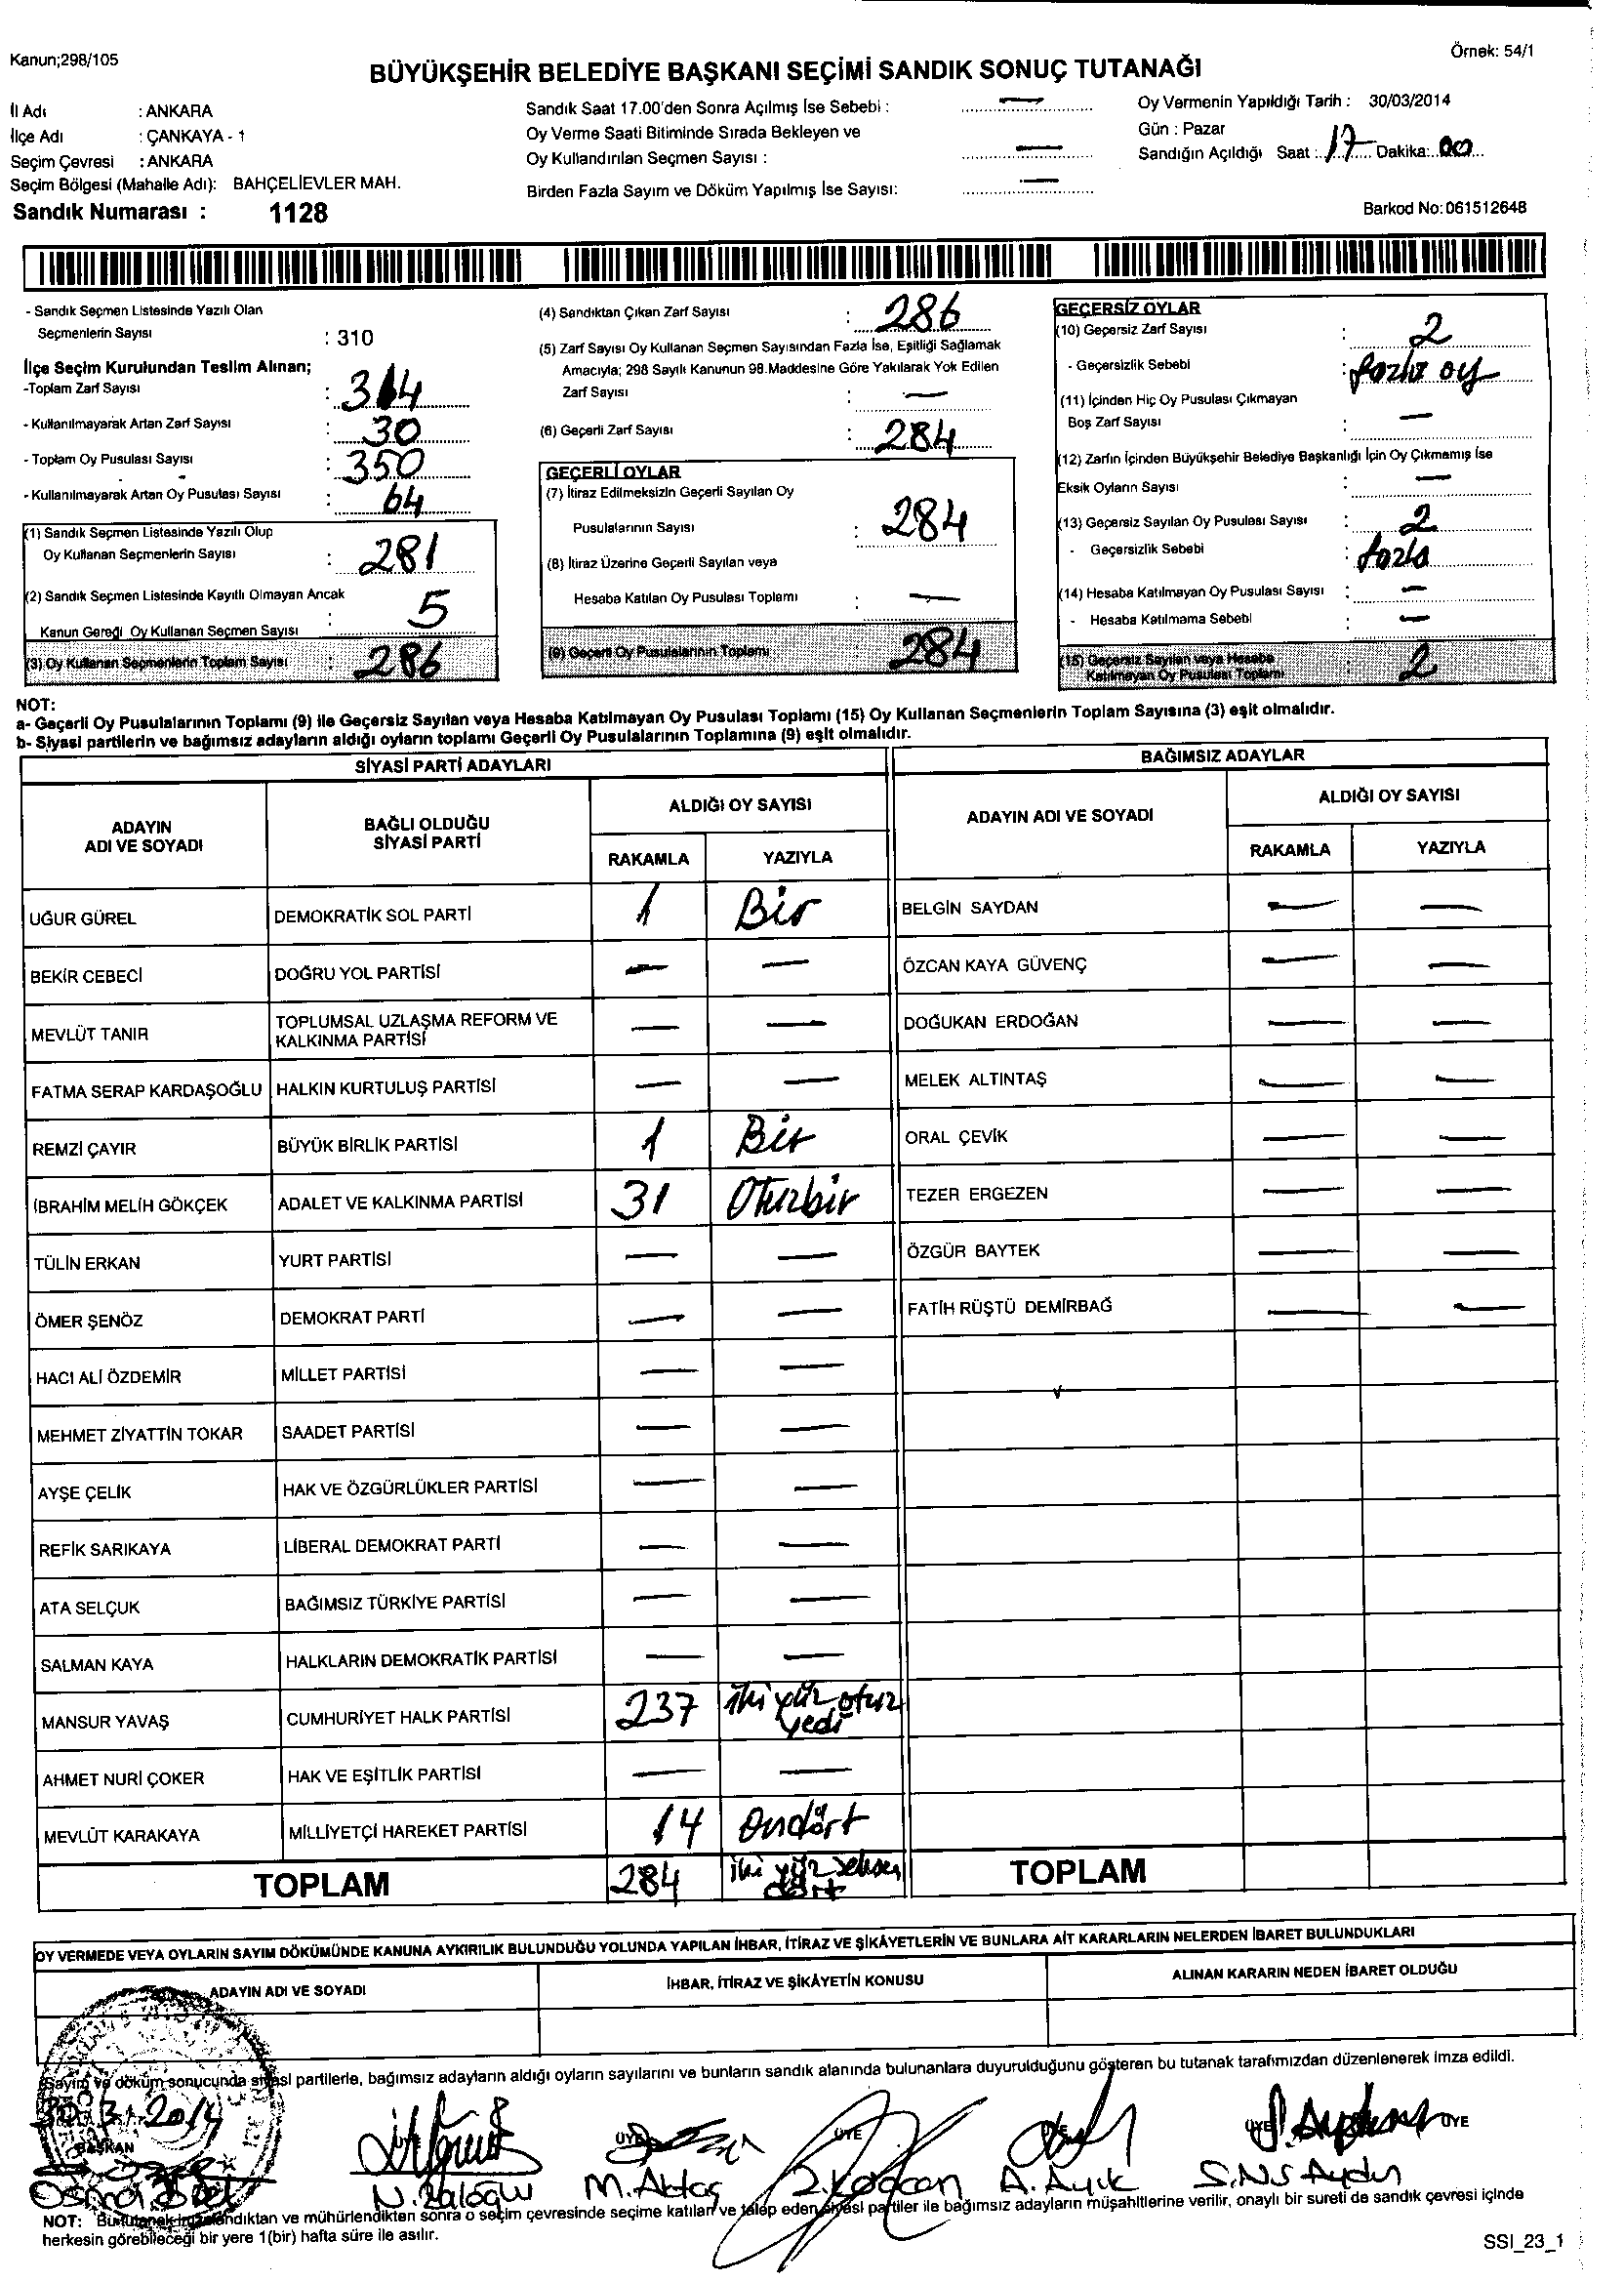 Kanun;298/105
Örnek: 54/1
BÜYÜKŞEHİR BELEDİYE BAŞKANI SEÇİMİ SANDIK SONUÇ TUTANAĞI
İl Adı : ANKARA
İlçe Adı : ÇANKAYA - 1
Seçim Çevresi : ANKARA
Seçim Bölgesi (Mahalle Adı): BAHÇELİEVLER MAH.
Sandık Numarası : 1128
Sandık Saat 17.00'den Sonra Açılmış İse Sebebi : —
Oy Verme Saati Bitiminde Sırada Bekleyen ve
Oy Kullandırılan Seçmen Sayısı : —
Birden Fazla Sayım ve Döküm Yapılmış İse Sayısı: —
Oy Vermenin Yapıldığı Tarih : 30/03/2014
Gün : Pazar
Sandığın Açıldığı Saat : 17 Dakika: 00
Barkod No:061512648
- Sandık Seçmen Listesinde Yazılı Olan
Seçmenlerin Sayısı : 310
İlçe Seçim Kurulundan Teslim Alınan;
-Toplam Zarf Sayısı : 314
- Kullanılmayarak Artan Zarf Sayısı : 30
- Toplam Oy Pusulası Sayısı : 350
- Kullanılmayarak Artan Oy Pusulası Sayısı : 64
(1) Sandık Seçmen Listesinde Yazılı Olup
Oy Kullanan Seçmenlerin Sayısı : 281
(2) Sandık Seçmen Listesinde Kayıtlı Olmayan Ancak
Kanun Gereği Oy Kullanan Seçmen Sayısı : 5
(3) Oy Kullanan Seçmenlerin Toplam Sayısı : 286
(4) Sandıktan Çıkan Zarf Sayısı : 286
(5) Zarf Sayısı Oy Kullanan Seçmen Sayısından Fazla İse, Eşitliği Sağlamak
Amacıyla; 298 Sayılı Kanunun 98.Maddesine Göre Yakılarak Yok Edilen
Zarf Sayısı : —
(6) Geçerli Zarf Sayısı : 284
GEÇERLİ OYLAR
(7) İtiraz Edilmeksizin Geçerli Sayılan Oy
Pusulalarının Sayısı : 284
(8) İtiraz Üzerine Geçerli Sayılan veya
Hesaba Katılan Oy Pusulası Toplamı : —
(9) Geçerli Oy Pusulalarının Toplamı : 284
GEÇERSİZ OYLAR
(10) Geçersiz Zarf Sayısı : 2
- Geçersizlik Sebebi : fazla oy
(11) İçinden Hiç Oy Pusulası Çıkmayan
Boş Zarf Sayısı : —
(12) Zarfın İçinden Büyükşehir Belediye Başkanlığı İçin Oy Çıkmamış İse
Eksik Oyların Sayısı : —
(13) Geçersiz Sayılan Oy Pusulası Sayısı : 2
- Geçersizlik Sebebi : fazla
(14) Hesaba Katılmayan Oy Pusulası Sayısı : —
- Hesaba Katılmama Sebebi : —
(15) Geçersiz Sayılan veya Hesaba
Katılmayan Oy Pusulası Toplamı : 2
NOT:
a- Geçerli Oy Pusulalarının Toplamı (9) ile Geçersiz Sayılan veya Hesaba Katılmayan Oy Pusulası Toplamı (15) Oy Kullanan Seçmenlerin Toplam Sayısına (3) eşit olmalıdır.
b- Siyasi partilerin ve bağımsız adayların aldığı oyların toplamı Geçerli Oy Pusulalarının Toplamına (9) eşit olmalıdır.
SİYASİ PARTİ ADAYLARI
ADAYIN
ADI VE SOYADI
BAĞLI OLDUĞU
SİYASİ PARTİ
ALDIĞI OY SAYISI
RAKAMLA YAZIYLA
UĞUR GÜREL DEMOKRATİK SOL PARTİ 1 Bir
BEKİR CEBECİ DOĞRU YOL PARTİSİ — —
MEVLÜT TANIR TOPLUMSAL UZLAŞMA REFORM VE
KALKINMA PARTİSİ — —
FATMA SERAP KARDAŞOĞLU HALKIN KURTULUŞ PARTİSİ — —
REMZİ ÇAYIR BÜYÜK BİRLİK PARTİSİ 1 Bir
İBRAHİM MELİH GÖKÇEK ADALET VE KALKINMA PARTİSİ 31 Oturzbir
TÜLİN ERKAN YURT PARTİSİ — —
ÖMER ŞENÖZ DEMOKRAT PARTİ — —
HACI ALİ ÖZDEMİR MİLLET PARTİSİ — —
MEHMET ZİYATTİN TOKAR SAADET PARTİSİ — —
AYŞE ÇELİK HAK VE ÖZGÜRLÜKLER PARTİSİ — —
REFİK SARIKAYA LİBERAL DEMOKRAT PARTİ — —
ATA SELÇUK BAĞIMSIZ TÜRKİYE PARTİSİ — —
SALMAN KAYA HALKLARIN DEMOKRATİK PARTİSİ — —
MANSUR YAVAŞ CUMHURİYET HALK PARTİSİ 237 iki yüz otuz
yedi
AHMET NURİ ÇOKER HAK VE EŞİTLİK PARTİSİ — —
MEVLÜT KARAKAYA MİLLİYETÇİ HAREKET PARTİSİ 14 Ondört
TOPLAM 284 iki yüz seksen
dört
BAĞIMSIZ ADAYLAR
ADAYIN ADI VE SOYADI
ALDIĞI OY SAYISI
RAKAMLA YAZIYLA
BELGİN SAYDAN — —
ÖZCAN KAYA GÜVENÇ — —
DOĞUKAN ERDOĞAN — —
MELEK ALTINTAŞ — —
ORAL ÇEVİK — —
TEZER ERGEZEN — —
ÖZGÜR BAYTEK — —
FATİH RÜŞTÜ DEMİRBAĞ — —
TOPLAM
OY VERMEDE VEYA OYLARIN SAYIM DÖKÜMÜNDE KANUNA AYKIRILIK BULUNDUĞU YOLUNDA YAPILAN İHBAR, İTİRAZ VE ŞİKÂYETLERİN VE BUNLARA AİT KARARLARIN NELERDEN İBARET BULUNDUKLARI
ADAYIN ADI VE SOYADI İHBAR, İTİRAZ VE ŞİKÂYETİN KONUSU ALINAN KARARIN NEDEN İBARET OLDUĞU
Sayım ve döküm sonucunda siyasi partilerle, bağımsız adayların aldığı oyların sayılarını ve bunların sandık alanında bulunanlara duyurulduğunu gösteren bu tutanak tarafımızdan düzenlenerek imza edildi.
30.3.2014
BAŞKAN ÜYE ÜYE ÜYE ÜYE ÜYE
M. Aktaş A. Ayık S. Nur Aydın
NOT: Bu tutanak imzalandıktan ve mühürlendikten sonra o seçim çevresinde seçime katılan ve talep eden siyasi partiler ile bağımsız adayların müşahitlerine verilir, onaylı bir sureti de sandık çevresi içinde
herkesin görebileceği bir yere 1(bir) hafta süre ile asılır.
SSI_23_1